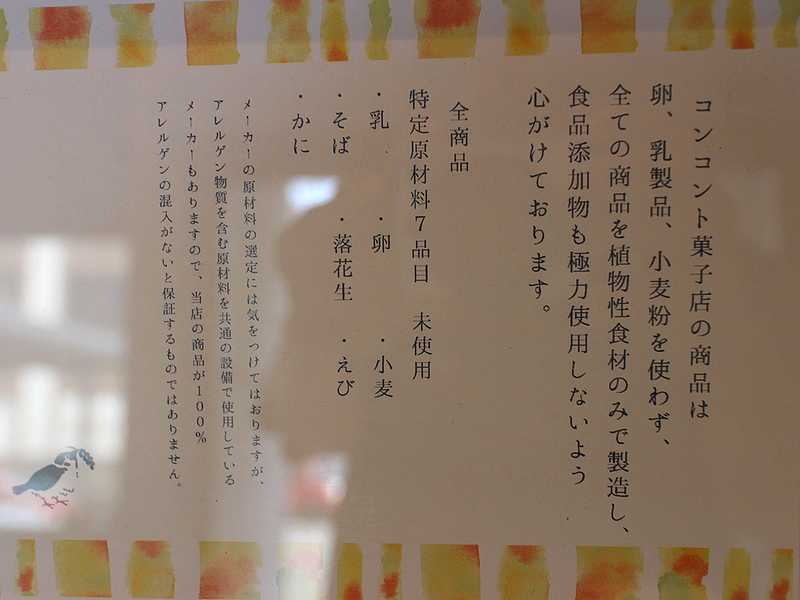 コンコント菓子店の商品は
卵、乳製品、小麦粉を使わず、
全ての商品を植物性食材のみで製造し、
食品添加物も極力使用しないよう
心がけております。
全商品
特定原材料7品目 未使用
・乳 ・卵 ・小麦
・そば ・落花生 ・えび
・かに
メーカーの原材料の選定には気をつけてはおりますが、
アレルゲン物質を含む原材料を共通の設備で使用している
メーカーもありますので、当店の商品が100%
アレルゲンの混入がないと保証するものではありません。